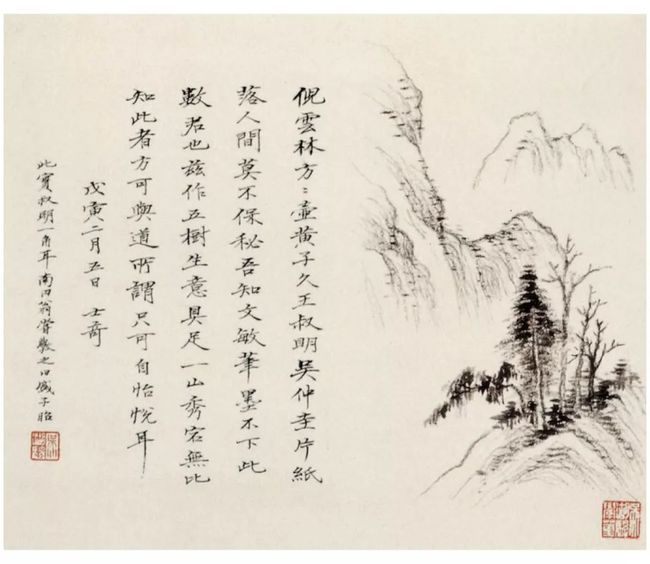 倪雲林方：壺黄子久王叔明吳仲圭片紙
落人間莫不保秘吾知文敏筆墨不下此
數君也兹作五樹生意具足一山秀宕無比
知此者方可與道所謂只可自怡悅耳
戊寅二月五日 士奇
此實叔明一角耳南田翁嘗